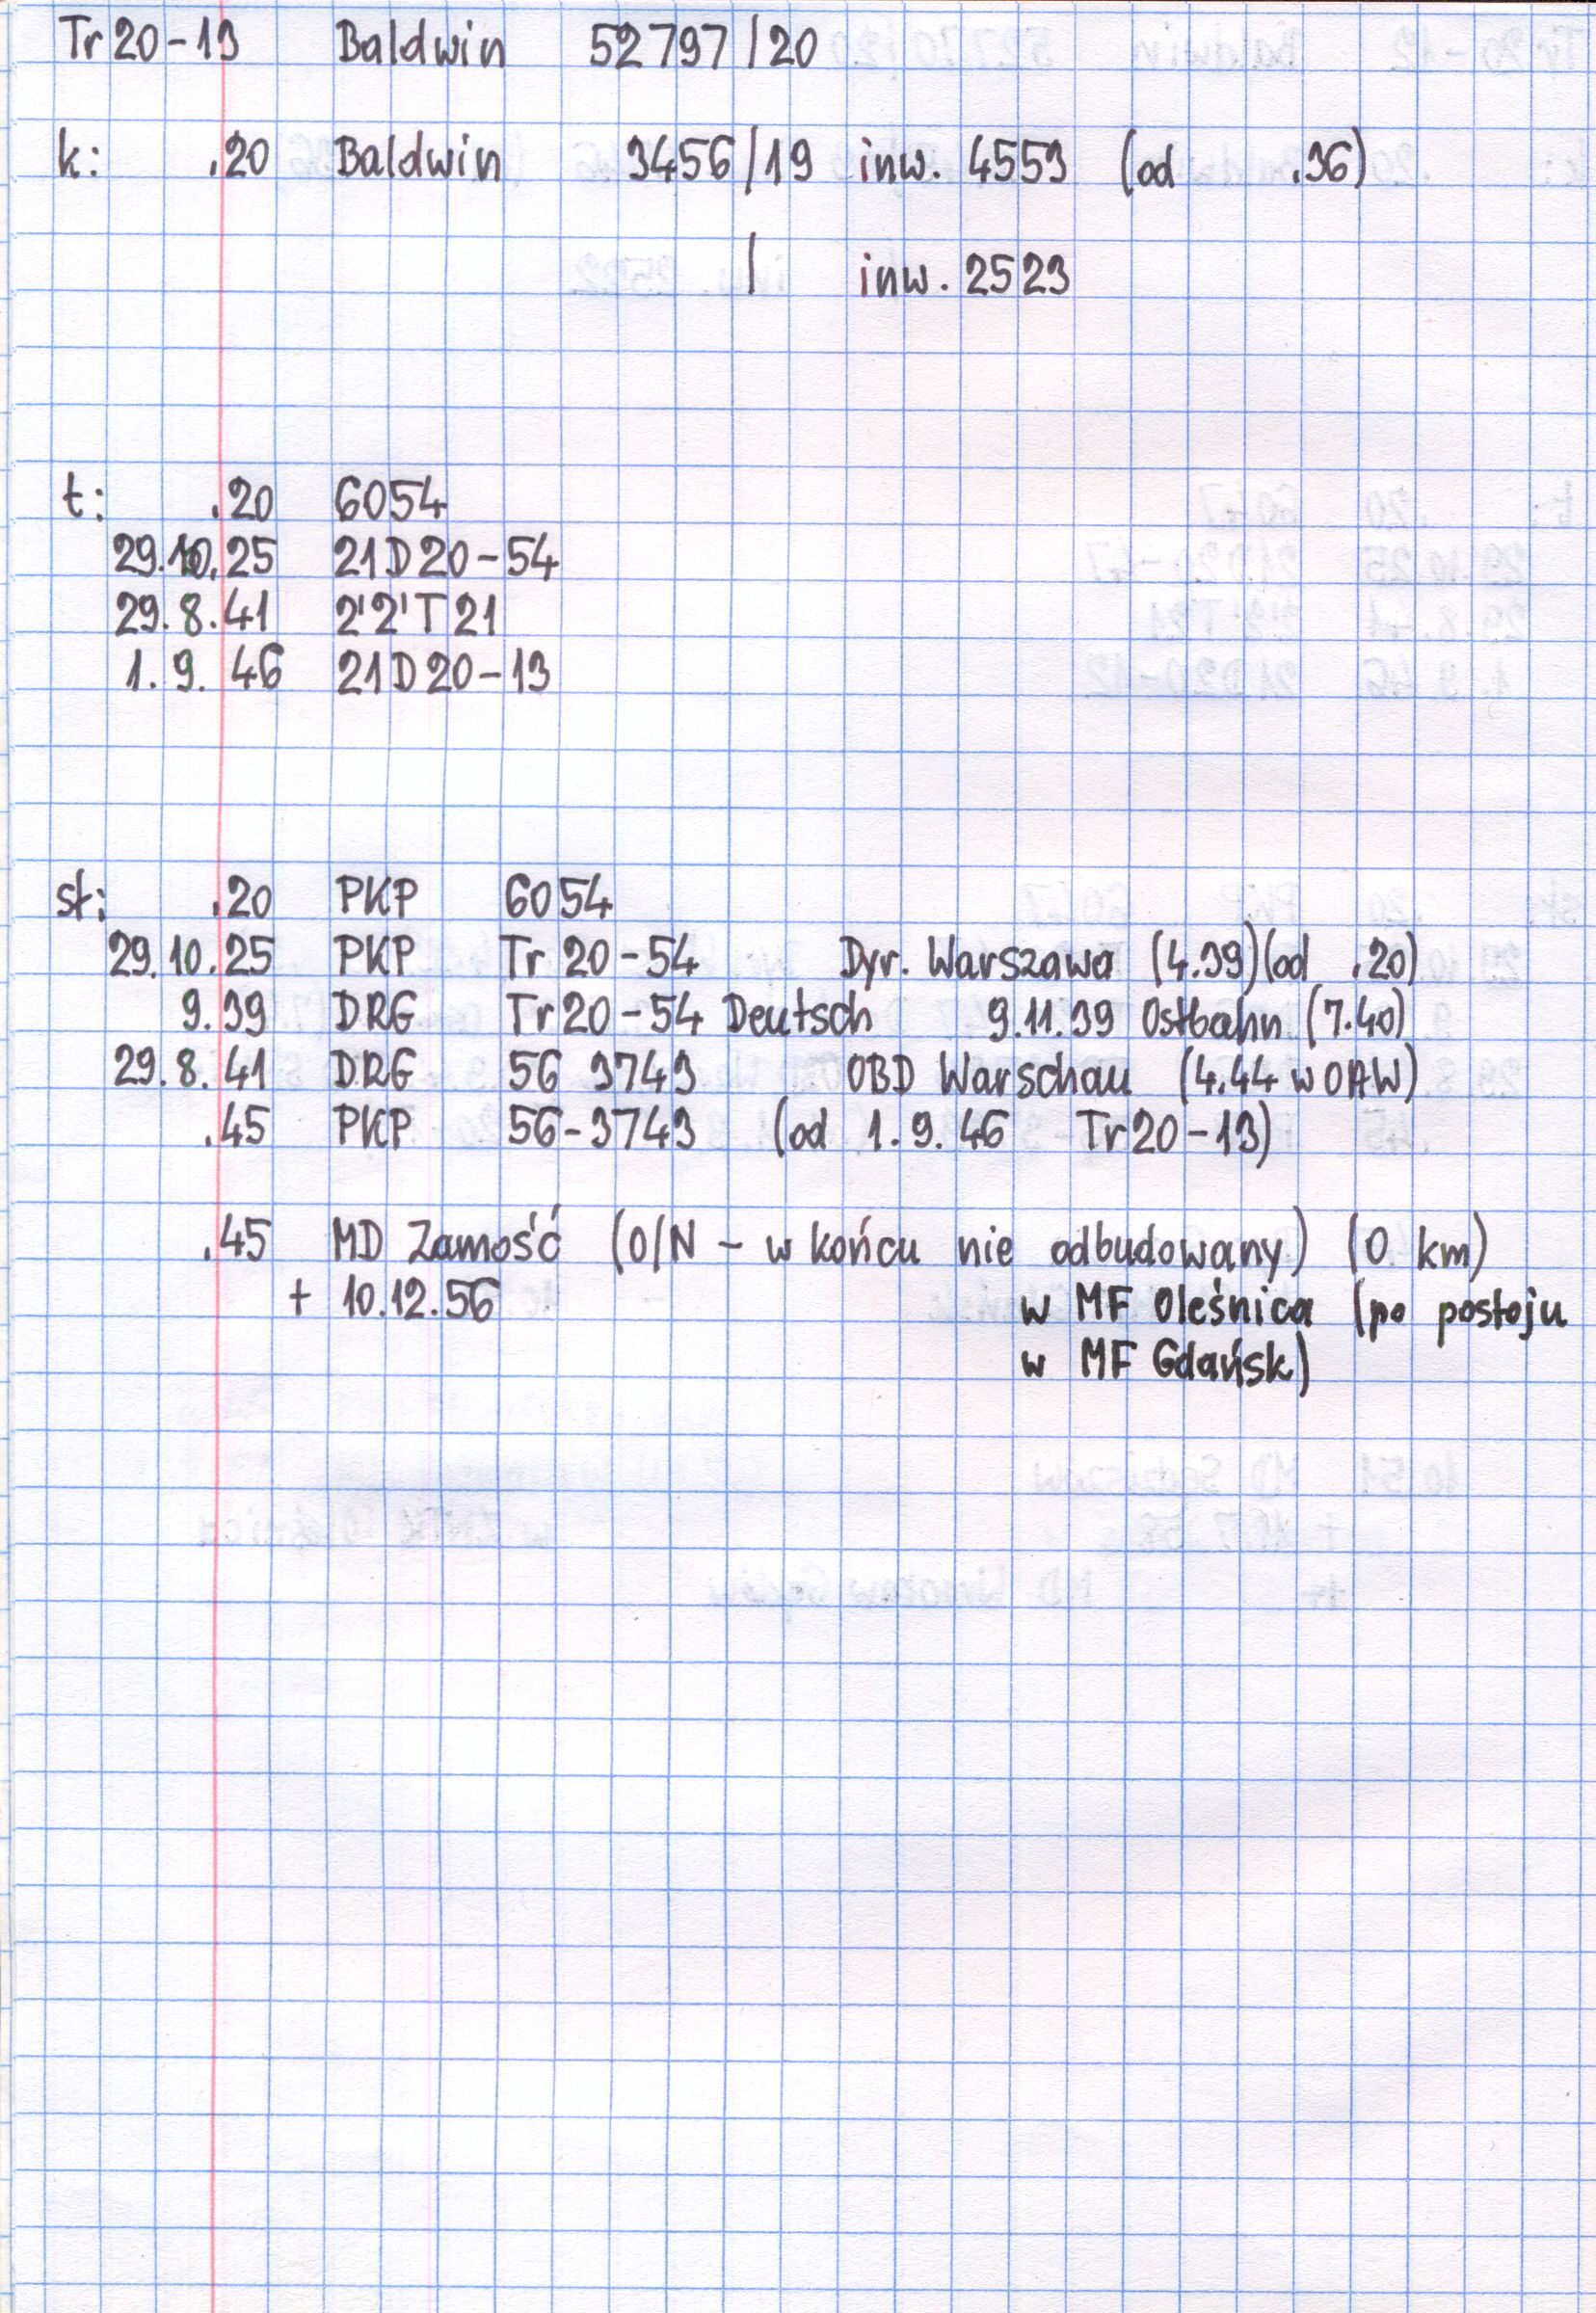 Tr 20-13 Baldwin 52797/20
k: .20 Baldwin 3456/19 inw. 4553 (od .36)
/ inw. 2523
t: .20 6054
29.10.25 21D20-54
29.8.41 2'2'T21
1.9.46 21D20-13
st: .20 PKP 6054
29.10.25 PKP Tr 20-54 Dyr. Warszawa (4.39)(od .20)
9.39 DRG Tr20-54 Deutsch 9.11.39 Ostbahn (7.40)
29.8.41 DRG 56 3743 OBD Warschau (4.44 w OAW)
.45 PKP 56-3743 (od 1.9.46 Tr20-13)
.45 MD Zamość (O/N - w końcu nie odbudowany) (0 km)
+ 10.12.56 w MF Oleśnica (po postoju
w MF Gdańsk)